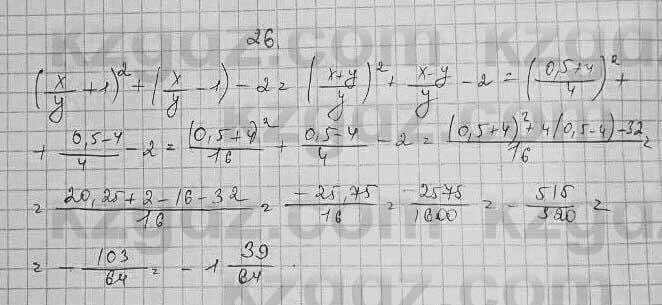 26.
(x/y + 1)² + (x/y - 1) - 2 = ((x+y)/y)² + (x-y)/y - 2 = ((0,5+4)/4)² +
+ (0,5-4)/4 - 2 = (0,5+4)²/16 + (0,5-4)/4 - 2 = ((0,5+4)² + 4(0,5-4) - 32)/16 =
= (20,25+2-16-32)/16 = (-25,75)/16 = -2575/1600 = - 515/320 =
= - 103/64 = - 1 39/64.
kzgdz.com